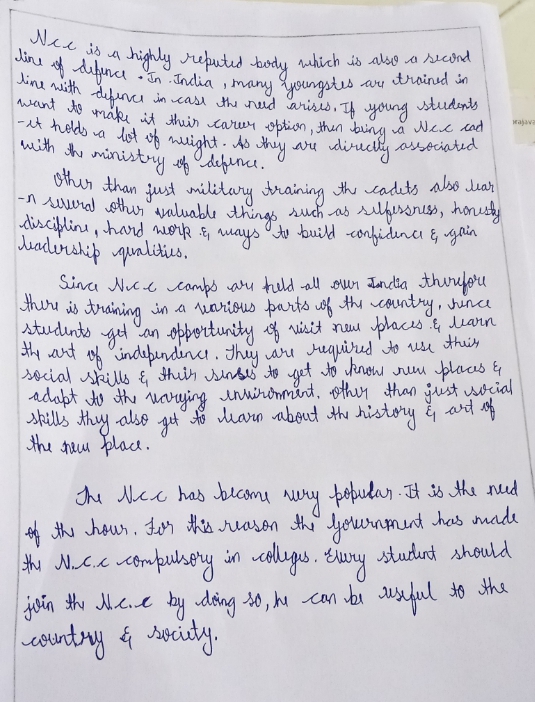 Ncc is a highly reputed body which is also a second
line of defence. In India, many youngstes are trained in
line with defence in case the need arises. If young students
want to make it their career option, then being a Ncc cad
-et holds a lot of weight. As they are directly associated
with the ministry of defence.
Other than just military training the cadets also lear
-n several other valuable things such as selflessness, honesty
discipline, hard work & ways to build confidence & gain
leadership qualities.
Since N.c.c camps are held all over India therefore
there is training in a various parts of the country, hence
students get an opportunity of visit new places & learn
the art of independence. They are required to use their
social skills & their senses to get to know new places &
adapt to the varying environment. Other than just social
skills they also get to learn about the history & art of
the new place.
The N.c.c has become very popular. It is the need
of the hour. For this reason the government has made
the N.c.c compulsory in colleges. Every student should
join the N.c.c by doing so, he can be useful to the
country & society.